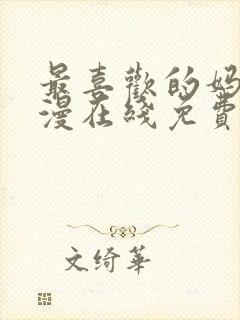 最喜歡的妈
漫在綫免費
文綺華